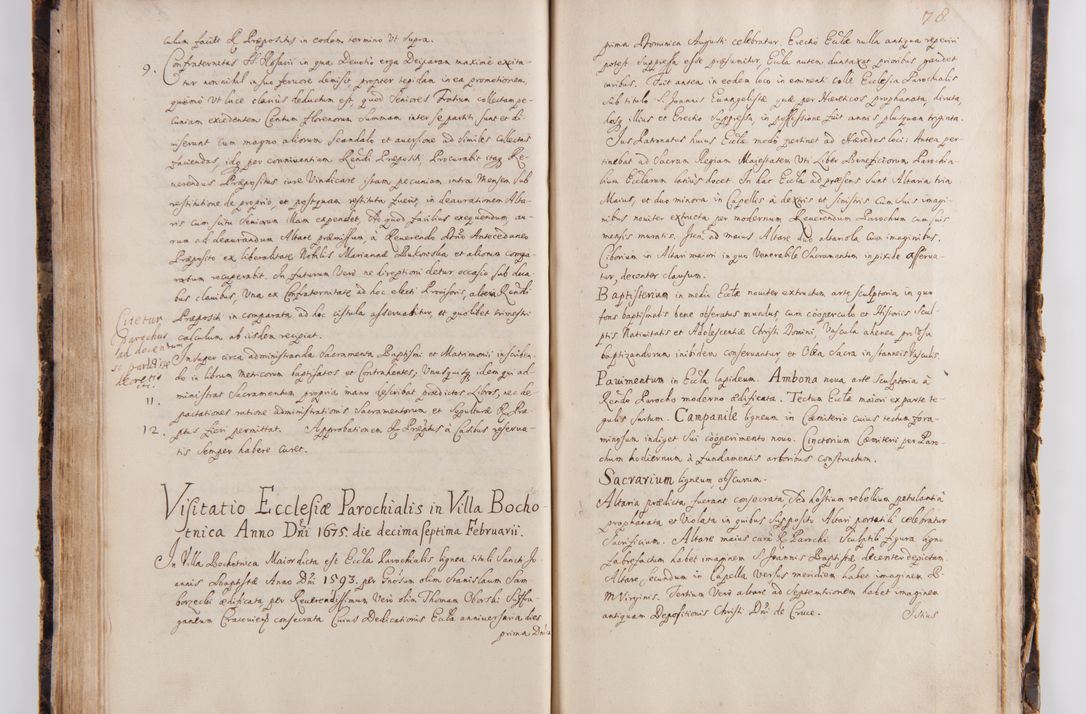 culum faciet R. Præpositus in eodem termino ut supra.
9. Confraternitas SS. Rosarii in qua Devotio erga Deiparam maxime excita-
tur non nihil in suo fervore remisse, propter tepidam in ea promotionem,
quemo Ut luce clarius deductum est, quod Seniores Fratrum collectam pe-
cuniam excedentem Centum florenorum Summam inter se partiti Sunt et di-
miserunt cum magno aliorum Scandalo et aversione ad similes collectas
faciendas, idq per conniventiam Rendi Præpositi. Procurabit itaq Re-
verendus Præpositus iure Vindicare istam pecuniam intra Mensem Sub
restitutione de proprio, et postquam restituta fuerit, in deaurationem Alta-
ris cum scitu Seniorum illam expendet, Ad quod facilius exequendum, au-
rum ad deaurandum Altare præmissum, à Reverendo Dno Antecedaneo
Præposito ex liberalitate Nobilis Marianæ comp-
ratum recuperabit. In futurum Verò ne direptioni detur occasio sub dua-
bus clavibus, Una ex Confraternitate ad hoc electi Provisoris, altera Rendi
Præpositi in comparata ad hoc cistula asservabitur, et quolibet trimestri
calculum ab iisdem recipiet.
Citetur
Parochus
ad docendum
se paruisse
decreto
Insuper circa administranda Sacramenta Baptismi et Matrimonii inscriben-
do in librum Meticorum baptisatos et Contrahentes, Unusquisq idem qui ad-
11. ministrat Sacramentum propria manu describat prædictos Libros, nec de-
pactationes ratione administrationis Sacramentorum et Sepulturæ R. Præ-
12. ptus fieri permittat. Approbationem R. Præptus à Casibus reserva-
tis Semper habere curet.
Visitatio Ecclesiæ Parochialis in Villa Bocho-
tnica Anno Dni 1675. die decima septima Februarii.
In Villa Bochotnica Maior dicta est Eccla Parochialis lignea tituli Sancti Jo-
annis Baptistæ Anno Dni 1593. per Gnosum olim Stanislaum Sam-
borzecki ædificata per Reverendissimum Verò olim Thomam Oborski Suffra-
ganeum Cracovien consecrata Cuius Dedicationis Eccla anniversaria dies
prima Dnica
78.
prima Dominica Augusti celebratur. Erectio Ecclæ nulla antiqua reperiri
potest Suppressa esse præsumitur, Eccla autem duntaxat prioribus gaudet
iuribus. Fuit autem in eodem loco in eminenti colle Ecclesia Parochialis
Sub titulo S. Joannis Evangelistæ quæ per Hæreticos prophanata, diruta,
dosq illius et Erectio Suppressa, in possessione fuit annis plusquam triginta.
Jus Patronatus huius Ecclæ modo pertinet ad Hæredes loci: Antea per-
tinebat ad Sacram Regiam Maiestatem Uti Liber Beneficiorum Parochia-
lium Ecclarum latius docet. In hac Eccla ad præsens Sunt Altaria tria
Maius, et duo minora in Capellis à dextris et sinistris cum Suis imagi-
nibus noviter extructa per modernum Reverendum Parochum cum ius
mensis muratis. Item ad maius Altare duo altariola cum imaginibus.
Ciborium in Altari maiori in quo Venerabile Sacramentum in pixide asserva-
tur, decenter clausum.
Baptisterium in medio Ecclæ noviter extructum arte sculptoria in quo
fons baptismalis bene obseratus mundus, cum cooperculo et Historiis Scul-
ptis Nativitatis et Adolescentiæ Christi Domini, Vascula ahenea pro Usu
baptizandorum inibidem conservantur, et Olea Sacra in stanneis Vasculis.
Pavimentum in Eccla lapideum. Ambona nova arte Sculptoria à
Rendo Parocho moderno ædificata. Tectum Ecclæ maiori ex parte te-
gulis Sartum. Campanile ligneum in Cæmiterio cuius tectum fora-
minosum indiget Sui cooperimento novo. Cinctorium Cæmiterii per Paro-
chum hodiernum à fundamentis arboribus Constructum.
Sacrarium ligneum, obscurum.
Altaria prædicta fuerant consecrata Sed hostium rebellium petulantia
prophanata, et Violata in quibus Supposito Altari portatili celebratur
Sacrificium. Altare maius curæ R. Parochi. Sculptili figura ligno
labrefactum habet imaginem S. Joannis Baptistæ, decenter depictam
Altare secundum in Capella Versus meridiem habet imaginem B.
M. Virginis. Tertium Verò altare ad Septemtrionem habet imaginem
antiquam Depositionis Christi Dni de Cruce. Istius